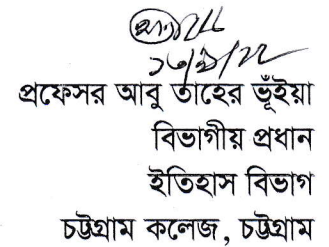 প্রফেসর আবু তাহের ভূঁইয়া
বিভাগীয় প্রধান
ইতিহাস বিভাগ
চট্টগ্রাম কলেজ, চট্টগ্রাম